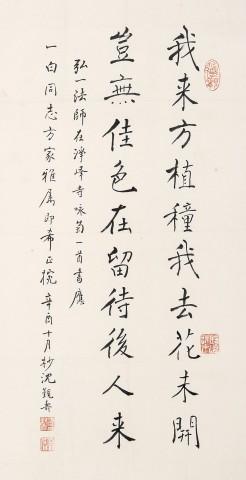 我来方植穜我去花未開
豈無佳色在留待後人来
弘一法師在淨峰寺咏菊一首書應
一白同志方家雅属即希正捥 辛酉十月杪沈觐寿